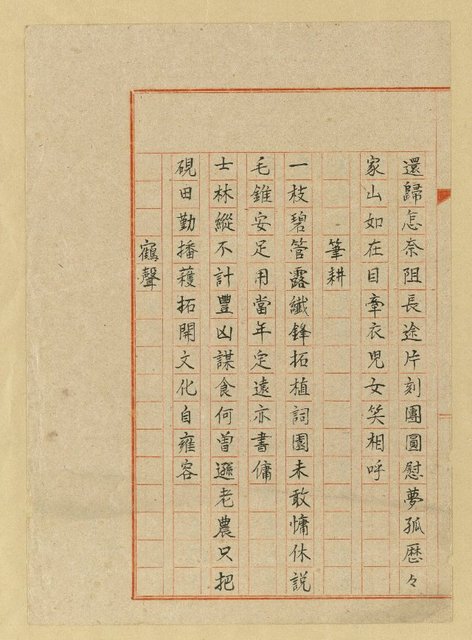 還歸怎奈阻長途片刻團圓慰夢孤歷々
家山如在目牽衣兒女笑相呼
筆耕
一枝碧管露纖鋒拓植詞園未敢慵休説
毛錐安足用當年定遠亦書傭
士林縱不計豐凶謀食何曾遜老農只把
硯田勤播穫拓開文化自雍容
鶴聲